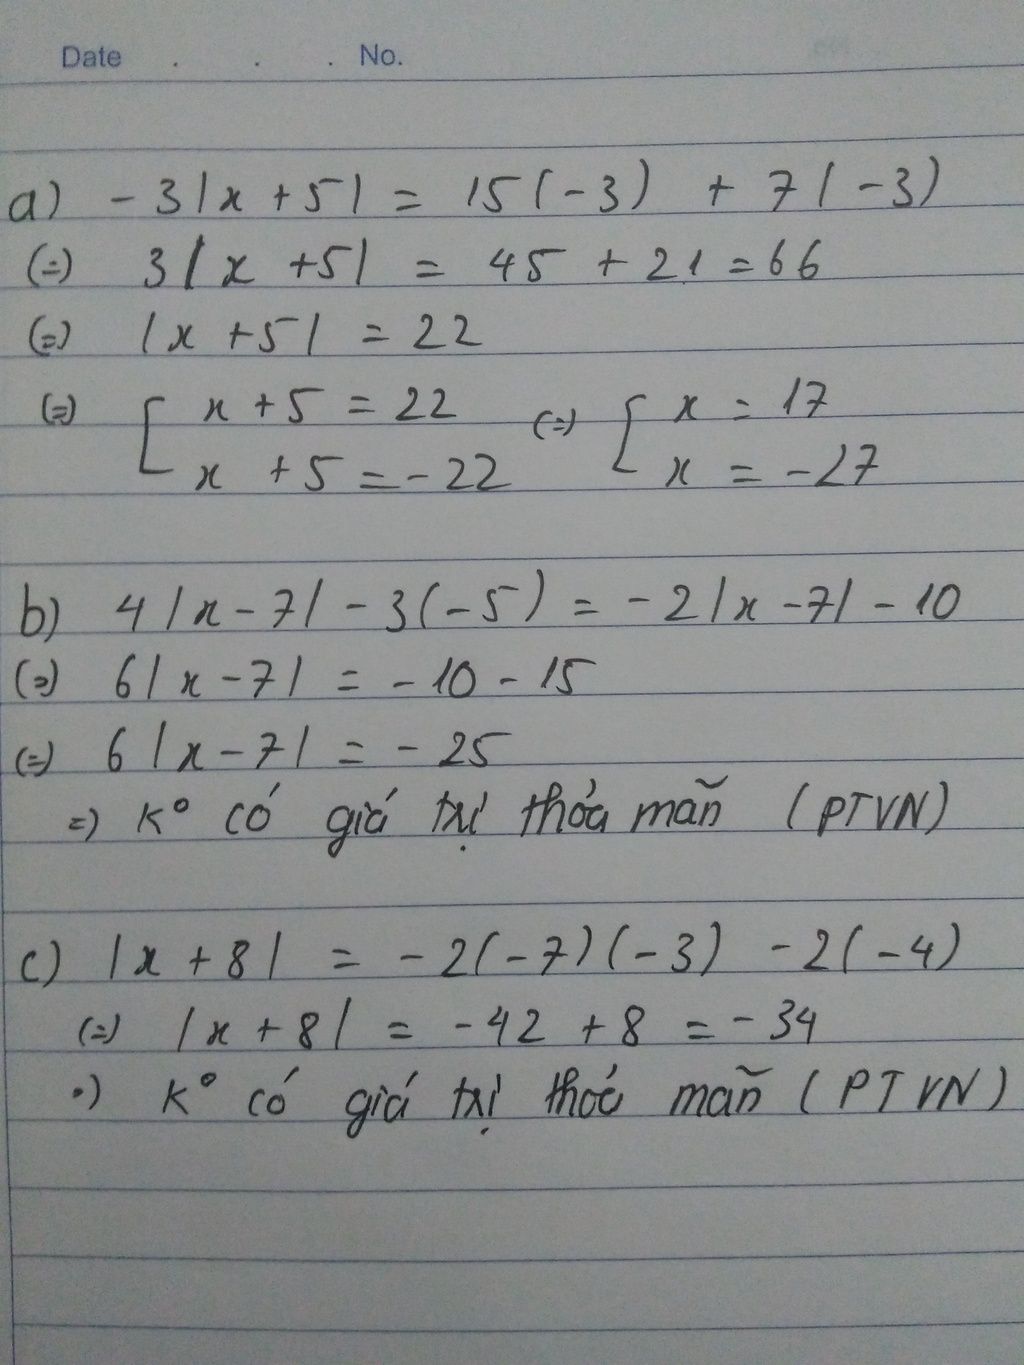 Date . . . No.
a) -3|x+5| = 15(-3) + 7(-3)
(=) 3|x+5| = 45 + 21 = 66
(=) |x+5| = 22
(=) [ x+5 = 22 (=) [ x = 17
x+5 = -22 x = -27
b) 4|x-7| - 3(-5) = -2|x-7| - 10
(=) 6|x-7| = -10 - 15
(=) 6|x-7| = -25
=) K° có giá trị thỏa mãn (PTVN)
c) |x+8| = -2(-7)(-3) - 2(-4)
(=) |x+8| = -42 + 8 = -34
=) K° có giá trị thỏa mãn (PTVN)